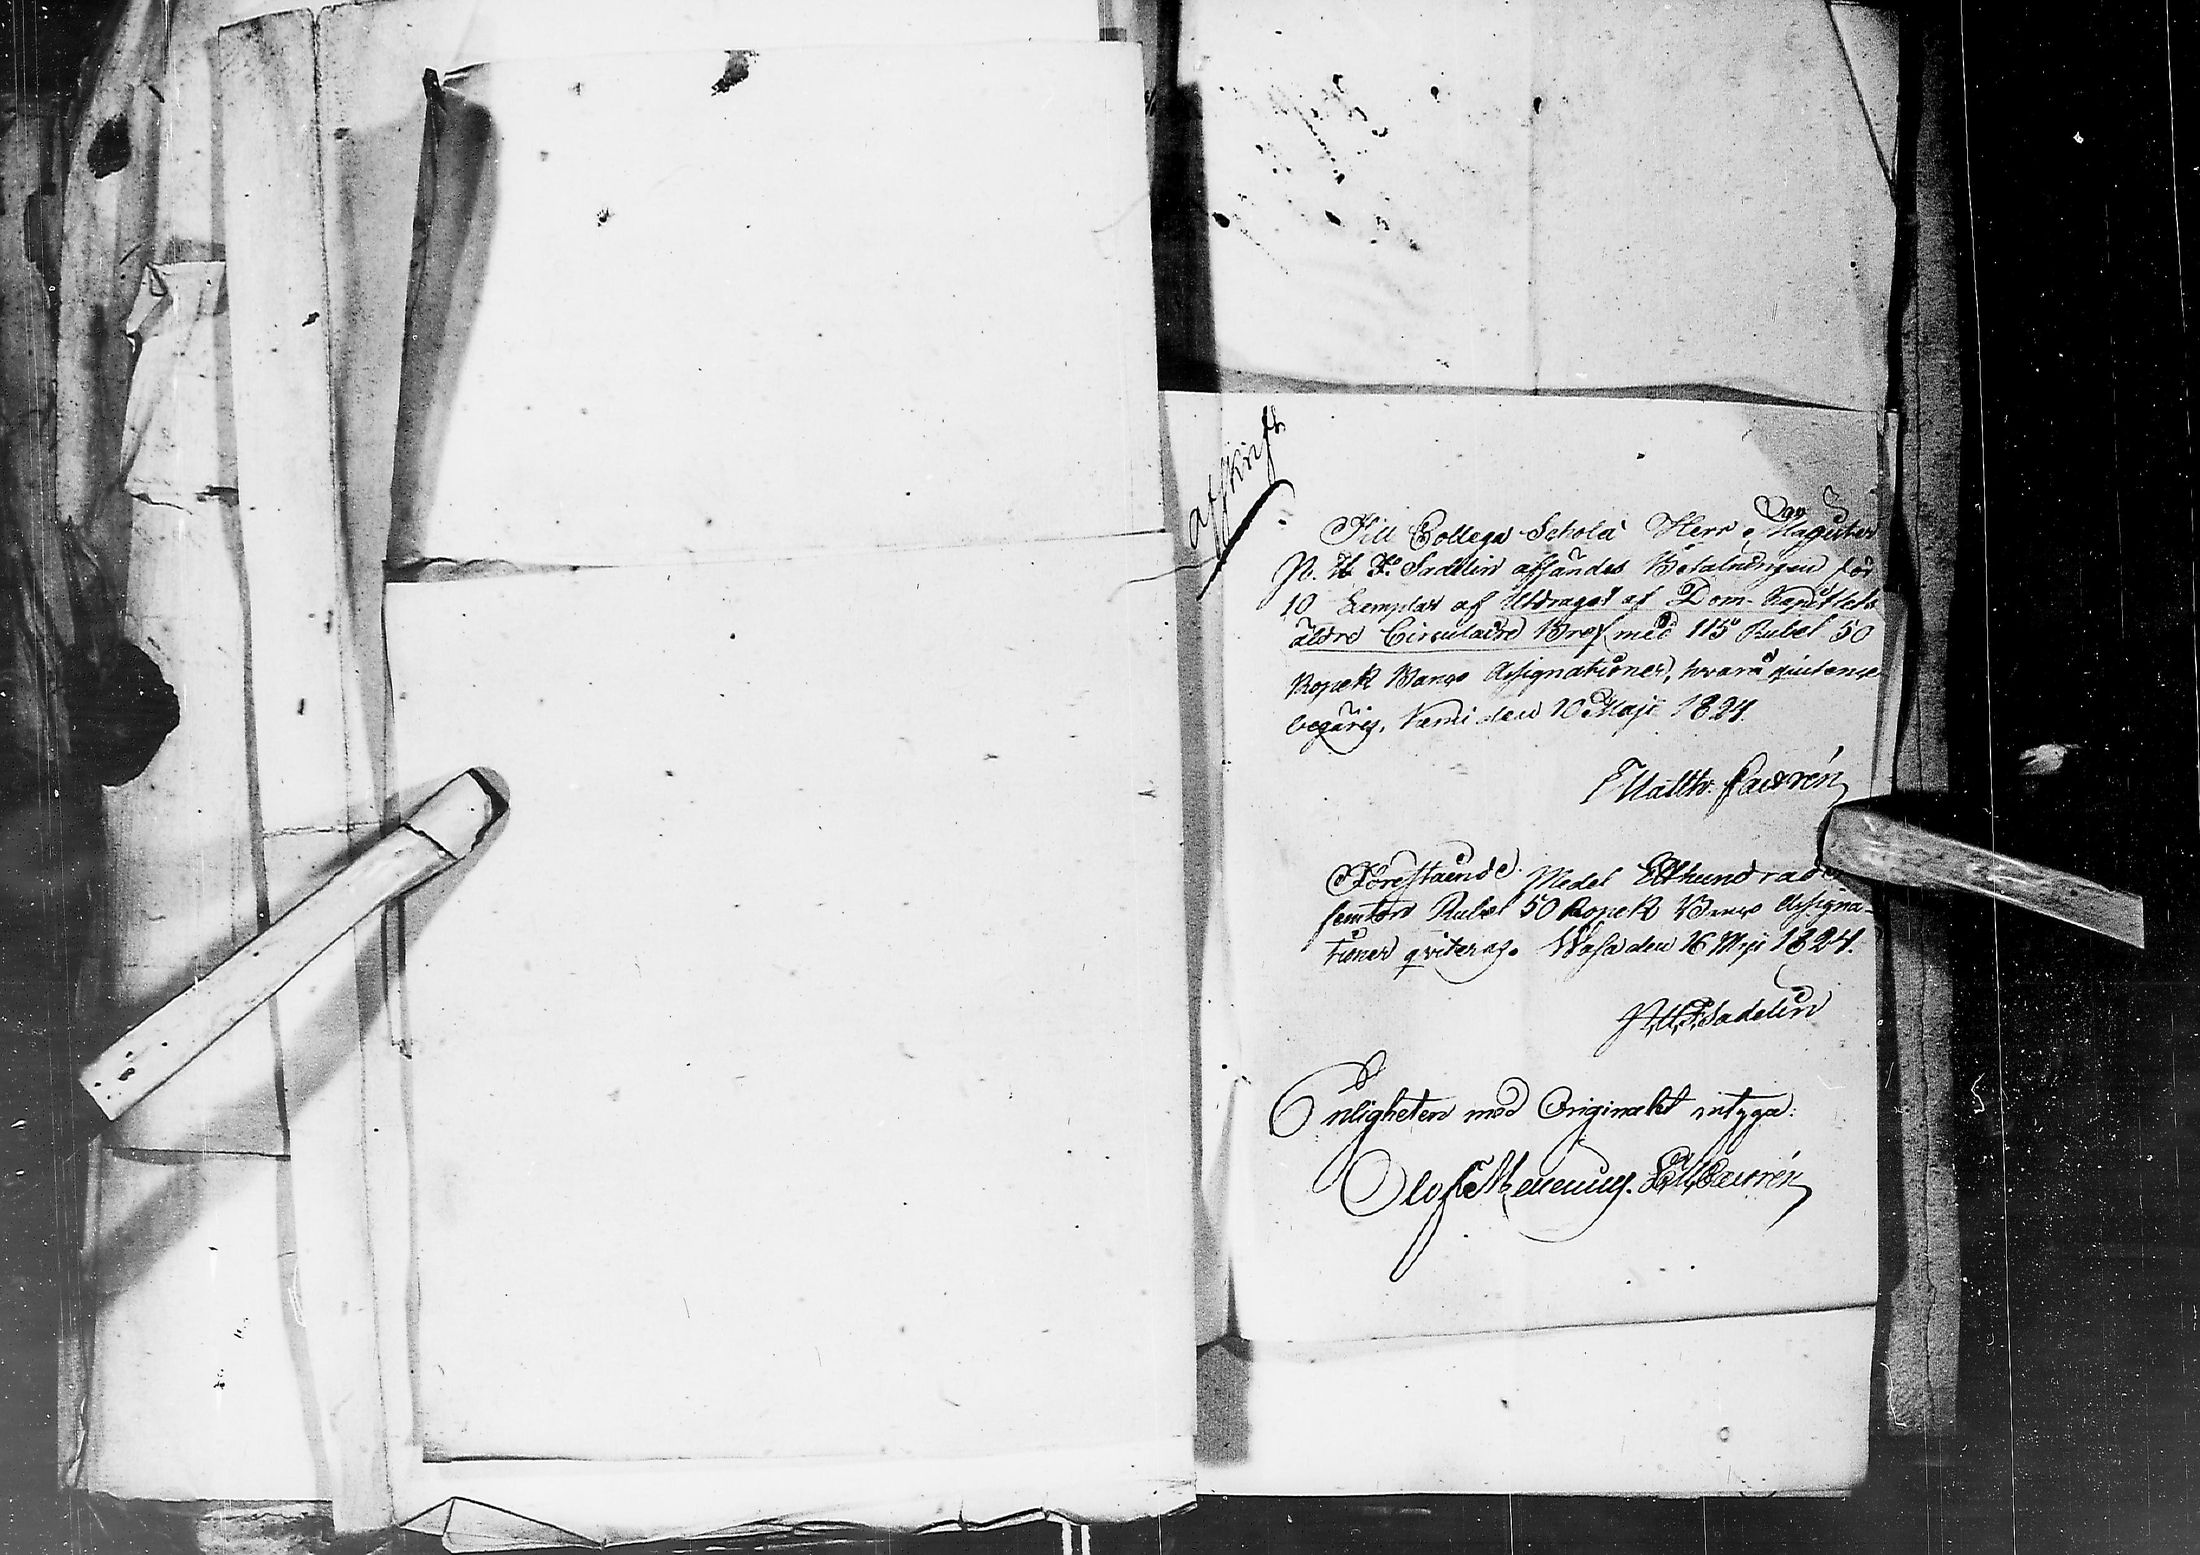 Afskrift
Till Collega Scholæ Herr Magister
N. U. F. Sadelin afsändes Betalningen för
10 Exemplar af Utdraget af Dom-Kapitlets
äldre Circulaire Bref med 115 Rubel 50
Kopek Banco Assignationer, hvarå quitence
begäres. Kemi den 10 Maji 1824.
Matth. Lawrén
Förestående Medel Etthundrade
femton Rubel 50 Kopek Banco Assigna-
tioner qviteras. Wasa den 16 Maji 1824.
N. U. F. Sadelin
Enligheten med Originalet intyga:
Olof Lawrén